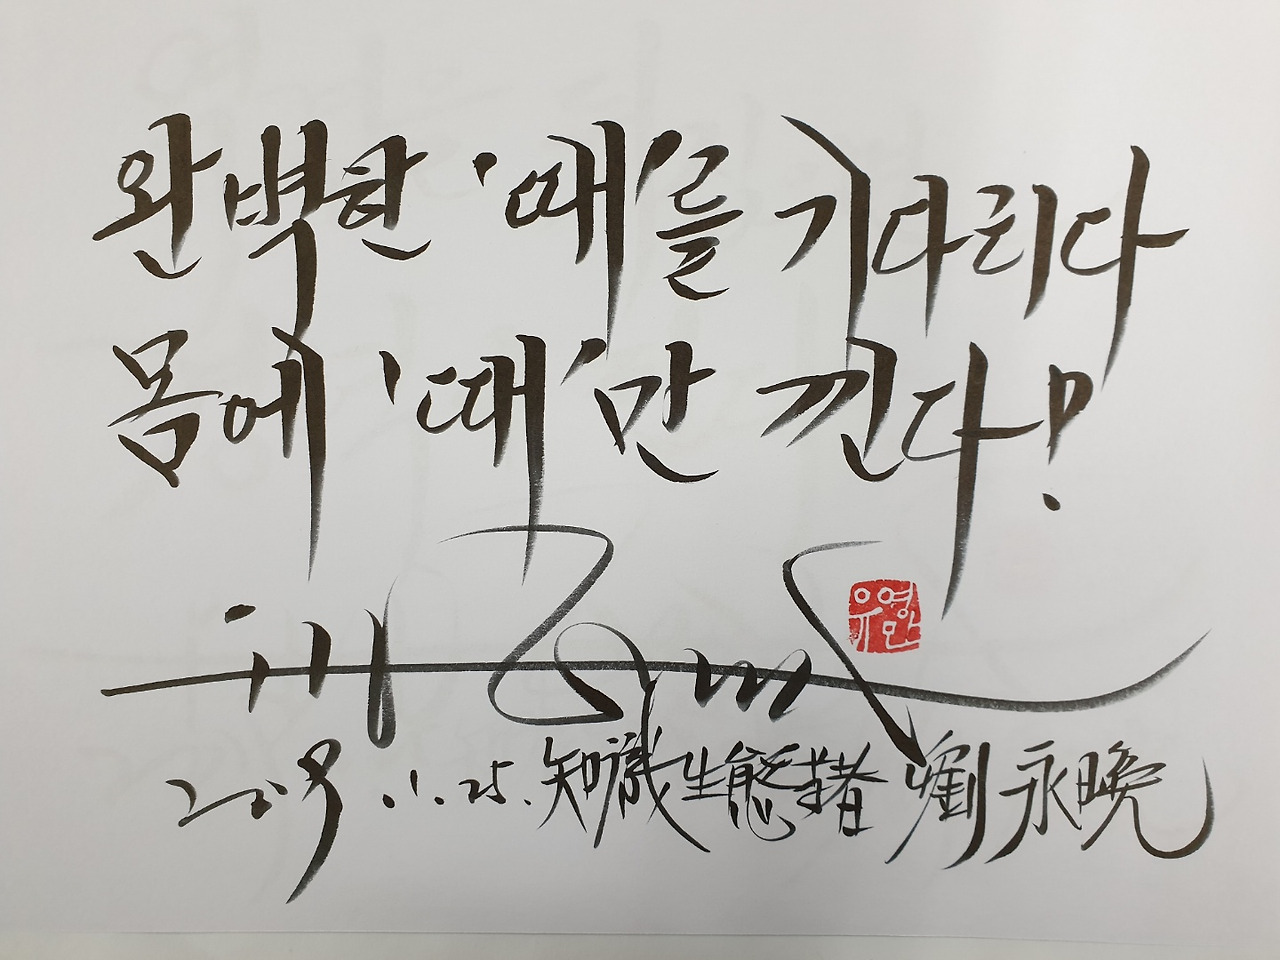 완벽한 '때'를 기다리다
몸에 '때'만 낀다!
유영만
2019.1.25. 知識生態學者 劉永晩